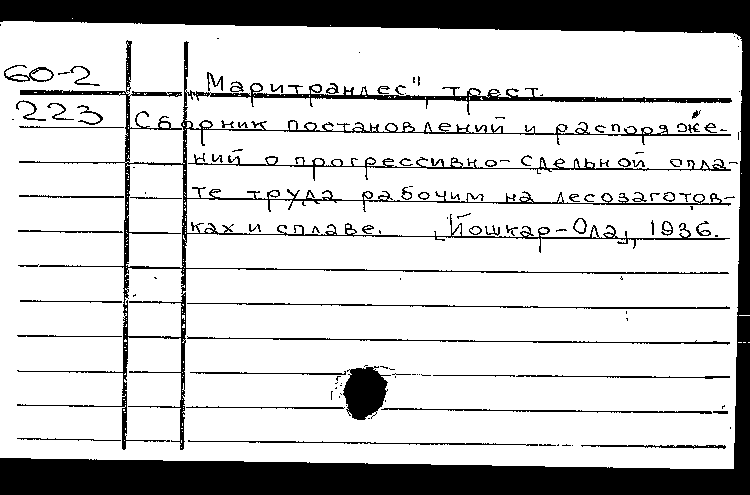 60-2
"Маритранлес", трест.
223
Сборник постановлений и распоряже-
ний о прогрессивно-сдельной опла-
те труда рабочим на лесозаготов-
ках и сплаве. [Йошкар-Ола], 1936.